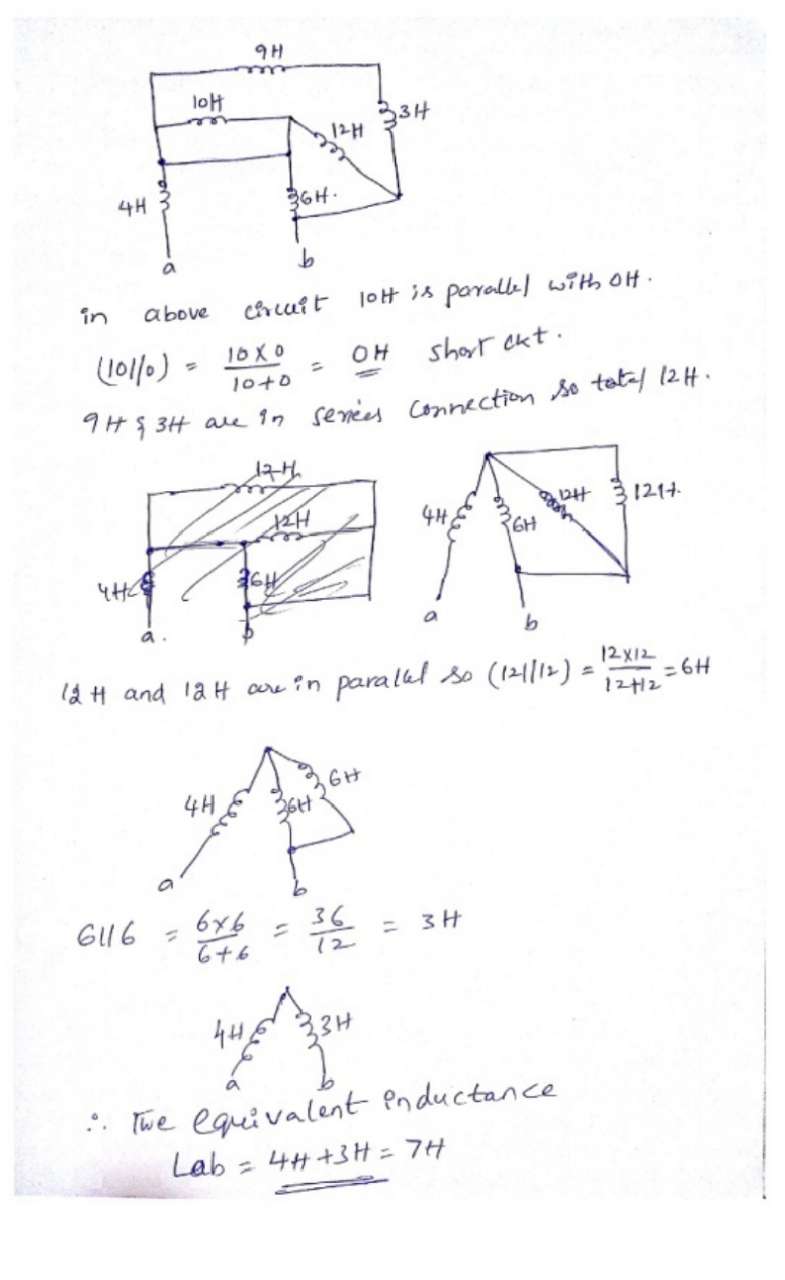 9H
10H
12H
3H
4H
6H.
a
b
in above circuit 10H is parallel with 0H.
(10//0) = 10 X 0 / 10+0 = 0H short ckt.
9H & 3H are in series connection so total 12H.
12H
12H
4H
6H
a.
b
4H
6H
12H
12H.
a
b
12 H and 12 H are in parallel so (12//12) = 12X12 / 12+12 = 6H
4H
6H
6H
a
b
6//6 = 6x6 / 6+6 = 36 / 12 = 3H
4H
3H
a
b
∴ The equivalent inductance
Lab = 4H +3H = 7H